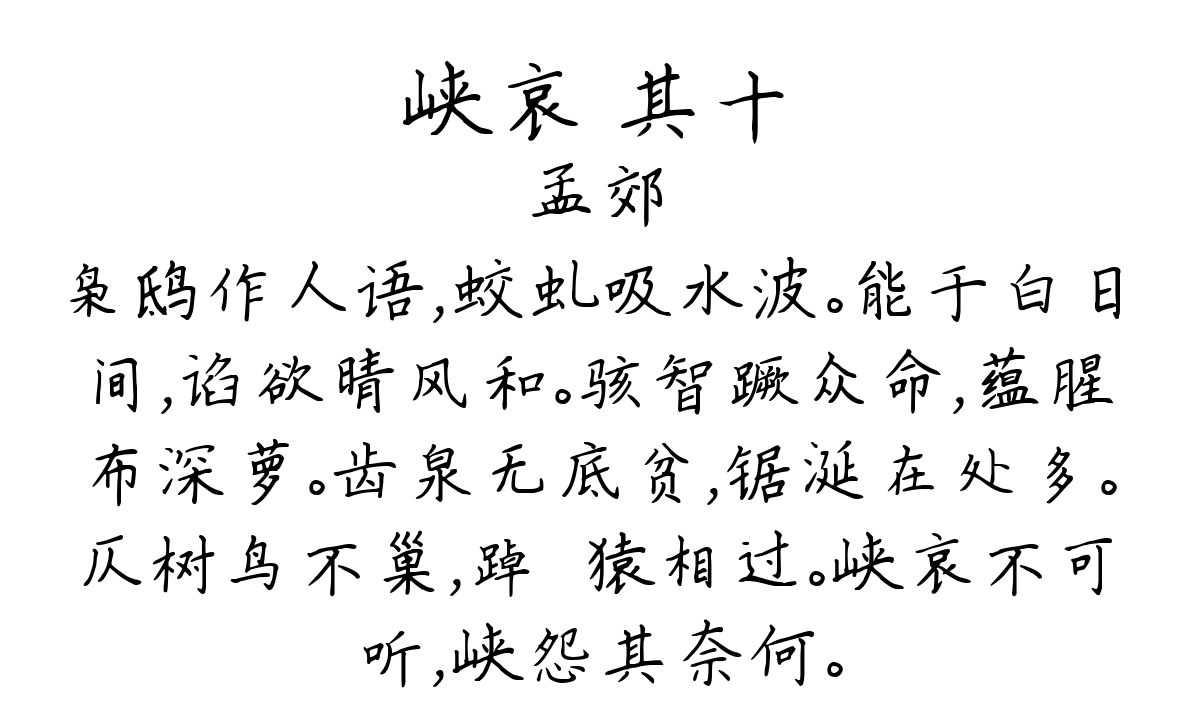 峡哀 其十
孟郊
枭鸱作人语,蛟虬吸水波。能于白日
间,谄欲晴风和。骇智蹶众命,蕴腥
布深萝。齿泉无底贫,锯涎在处多。
仄树鸟不巢,踔 猿相过。峡哀不可
听,峡怨其奈何。